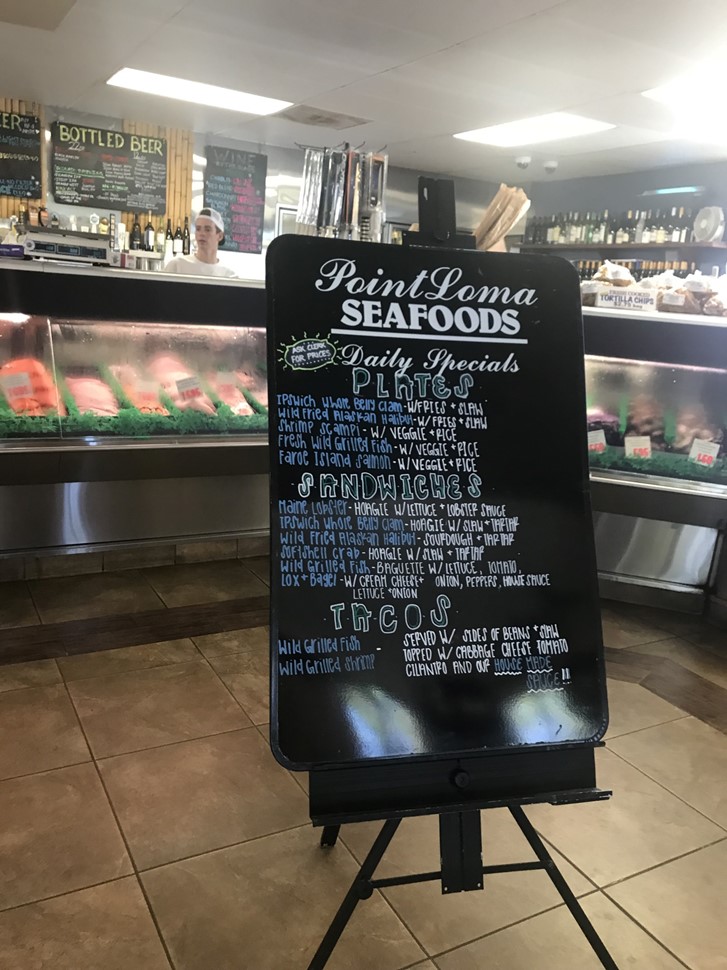 BOTTLED BEER
WINE
TORTILLA CHIPS
Point Loma
SEAFOODS
ASK CLERK
FOR PRICES
Daily Specials
PLATES
Ipswich Whole Belly Clam - W/FRIES + SLAW
Wild Fried Alaskan Halibut - W/FRIES + SLAW
Shrimp Scampi - W/ VEGGIE + RICE
Fresh Wild Grilled Fish - W/VEGGIE + RICE
Faroe Island Salmon - W/VEGGIE + RICE
SANDWICHES
Maine Lobster - HOAGIE W/LETTUCE + LOBSTER SAUCE
Ipswich Whole Belly Clam - HOAGIE W/ SLAW + TARTAR
Wild Fried Alaskan Halibut - SOURDOUGH + TARTAR
Softshell Crab - HOAGIE W/ SLAW + TARTAR
Wild Grilled Fish - BAGUETTE W/ LETTUCE, TOMATO,
Lox + Bagel - W/ CREAM CHEESE + ONION, PEPPERS, HOUSE SAUCE
LETTUCE + ONION
TACOS
Wild Grilled Fish
Wild Grilled Shrimp
SERVED W/ SIDES OF BEANS + SLAW
TOPPED W/ CABBAGE CHEESE TOMATO
CILANTRO AND OUR HOUSE MADE
SAUCE!!